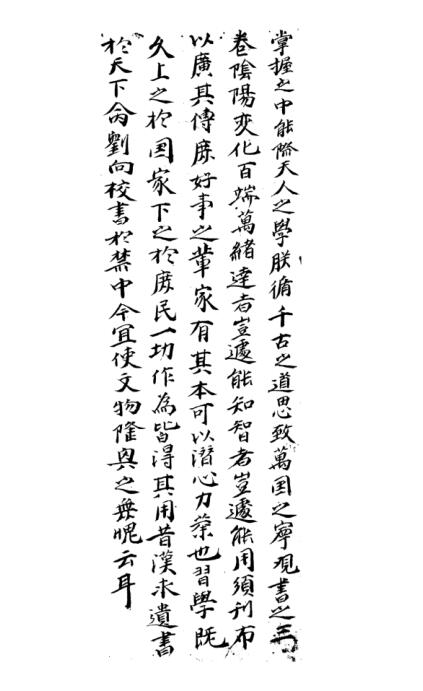 掌握之中能際天人之學朕循千古之道思致萬国之寧观書之三
卷陰陽变化百端萬緒達者豈遽能知智者豈遽能用須刊布
以廣其傳庶好事之輩家有其本可以潜心力業也習學既
久上之於国家下之於庶民一切作為皆得其用昔漢求遺書
於天下命劉向校書於禁中今宜使文物隆興之無愧云耳